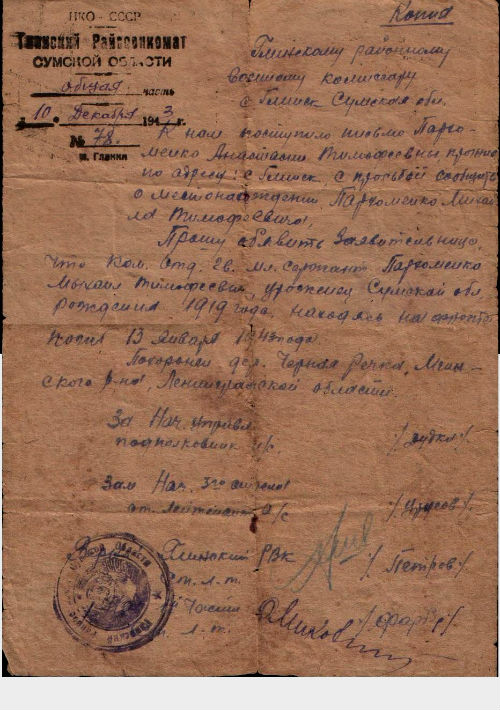 Копия
НКО - СССР
Глинский Райвоенкомат
СУМСКОЙ ОБЛАСТИ
общая часть
10 Декабря 1943 г.
№ 78
Глинскому районному
Военному комиссару
с Глинск Сумской обл.
К нам поступило письмо Пархо-
менко Анастасии Тимофеевны
по адресу: с Глинск с просьбой сообщить
о местонахождении Пархоменко Михаи
ла Тимофеевича.
Прошу объявить заявительнице,
что Ком. Отд. Гв. мл. сержант Пархоменко
Михаил Тимофеевич уроженец Сумской обл
рождения 1919 года, находясь на фронте
погиб 13 Января 1943 года.
Похоронен дер. Черная Речка, Мгин-
ского р-на, Ленинградской области.
За Нач. управл.
подполковник п/с
Зам Нач. 3го отдела
ст. лейтенант п/с /Урусов/.
Глинский РВК /Петров/.
ст. л. т.
Части
л. т.